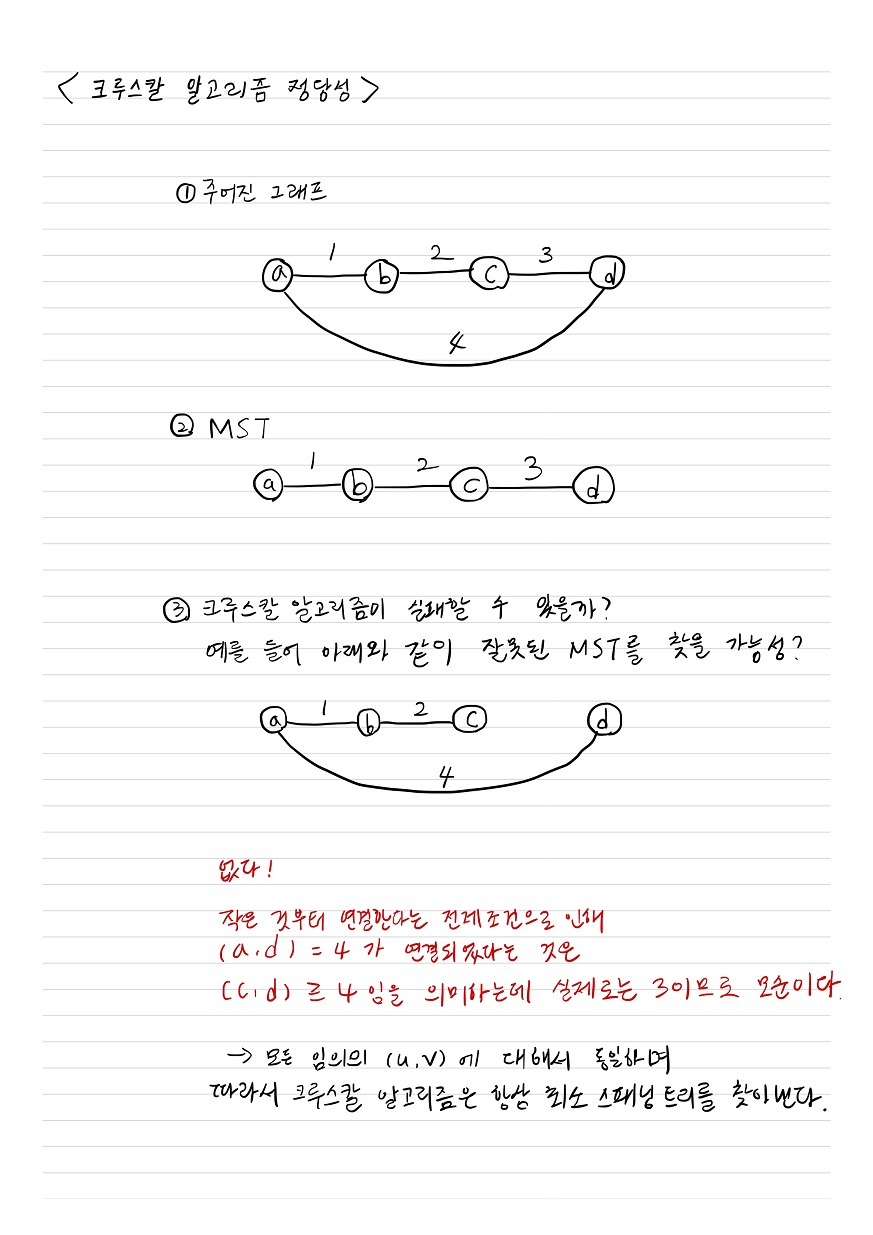 < 크루스칼 알고리즘 정당성 >
① 주어진 그래프
1 2 3
a b c d
4
② MST
1 2 3
a b c d
③ 크루스칼 알고리즘이 실패할 수 있을까?
예를 들어 아래와 같이 잘못된 MST를 찾을 가능성?
1 2
a b c d
4
없다!
작은 것부터 연결한다는 전제조건으로 인해
(a,d) = 4 가 연결되었다는 것은
(c,d) ≥ 4 임을 의미하는데 실제로는 3이므로 모순이다.
→ 모든 임의의 (u,v) 에 대해서 동일하며
따라서 크루스칼 알고리즘은 항상 최소 스패닝 트리를 찾아낸다.